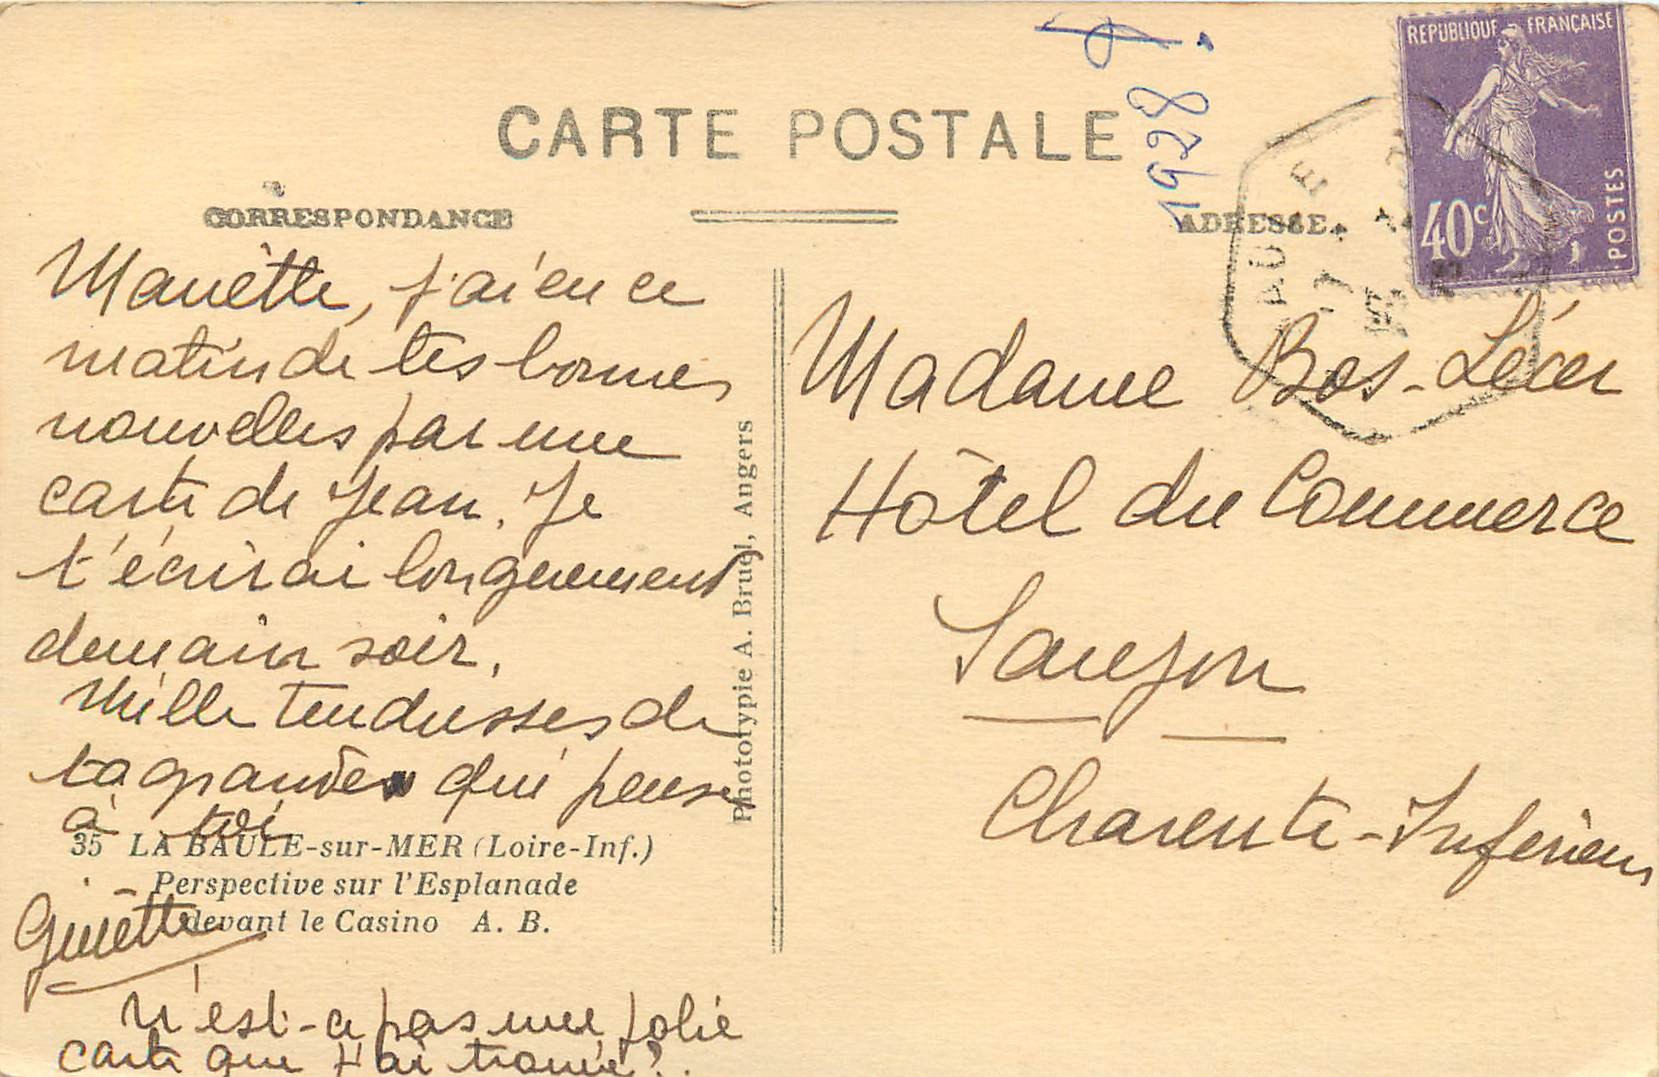 CARTE POSTALE
1928 ?
REPUBLIQUE FRANÇAISE
40c
POSTES
CORRESPONDANCE
ADRESSE
Manètte, j'ai eu ce
matin de tes bonnes
nouvelles par une
carte de Jean. Je
t'écrirai longuement
demain soir.
Mille tendresses de
ta grande qui pense
à toi
Ginètte
N'est-ce pas une jolie
carte que j'ai trouvée ?
35 LA BAULE-sur-MER (Loire-Inf.)
Perspective sur l'Esplanade
devant le Casino A. B.
Phototypie A. Bruel, Angers
Madame Bos-Lécer
Hôtel du Commerce
Saujon
Charente-Inférieure